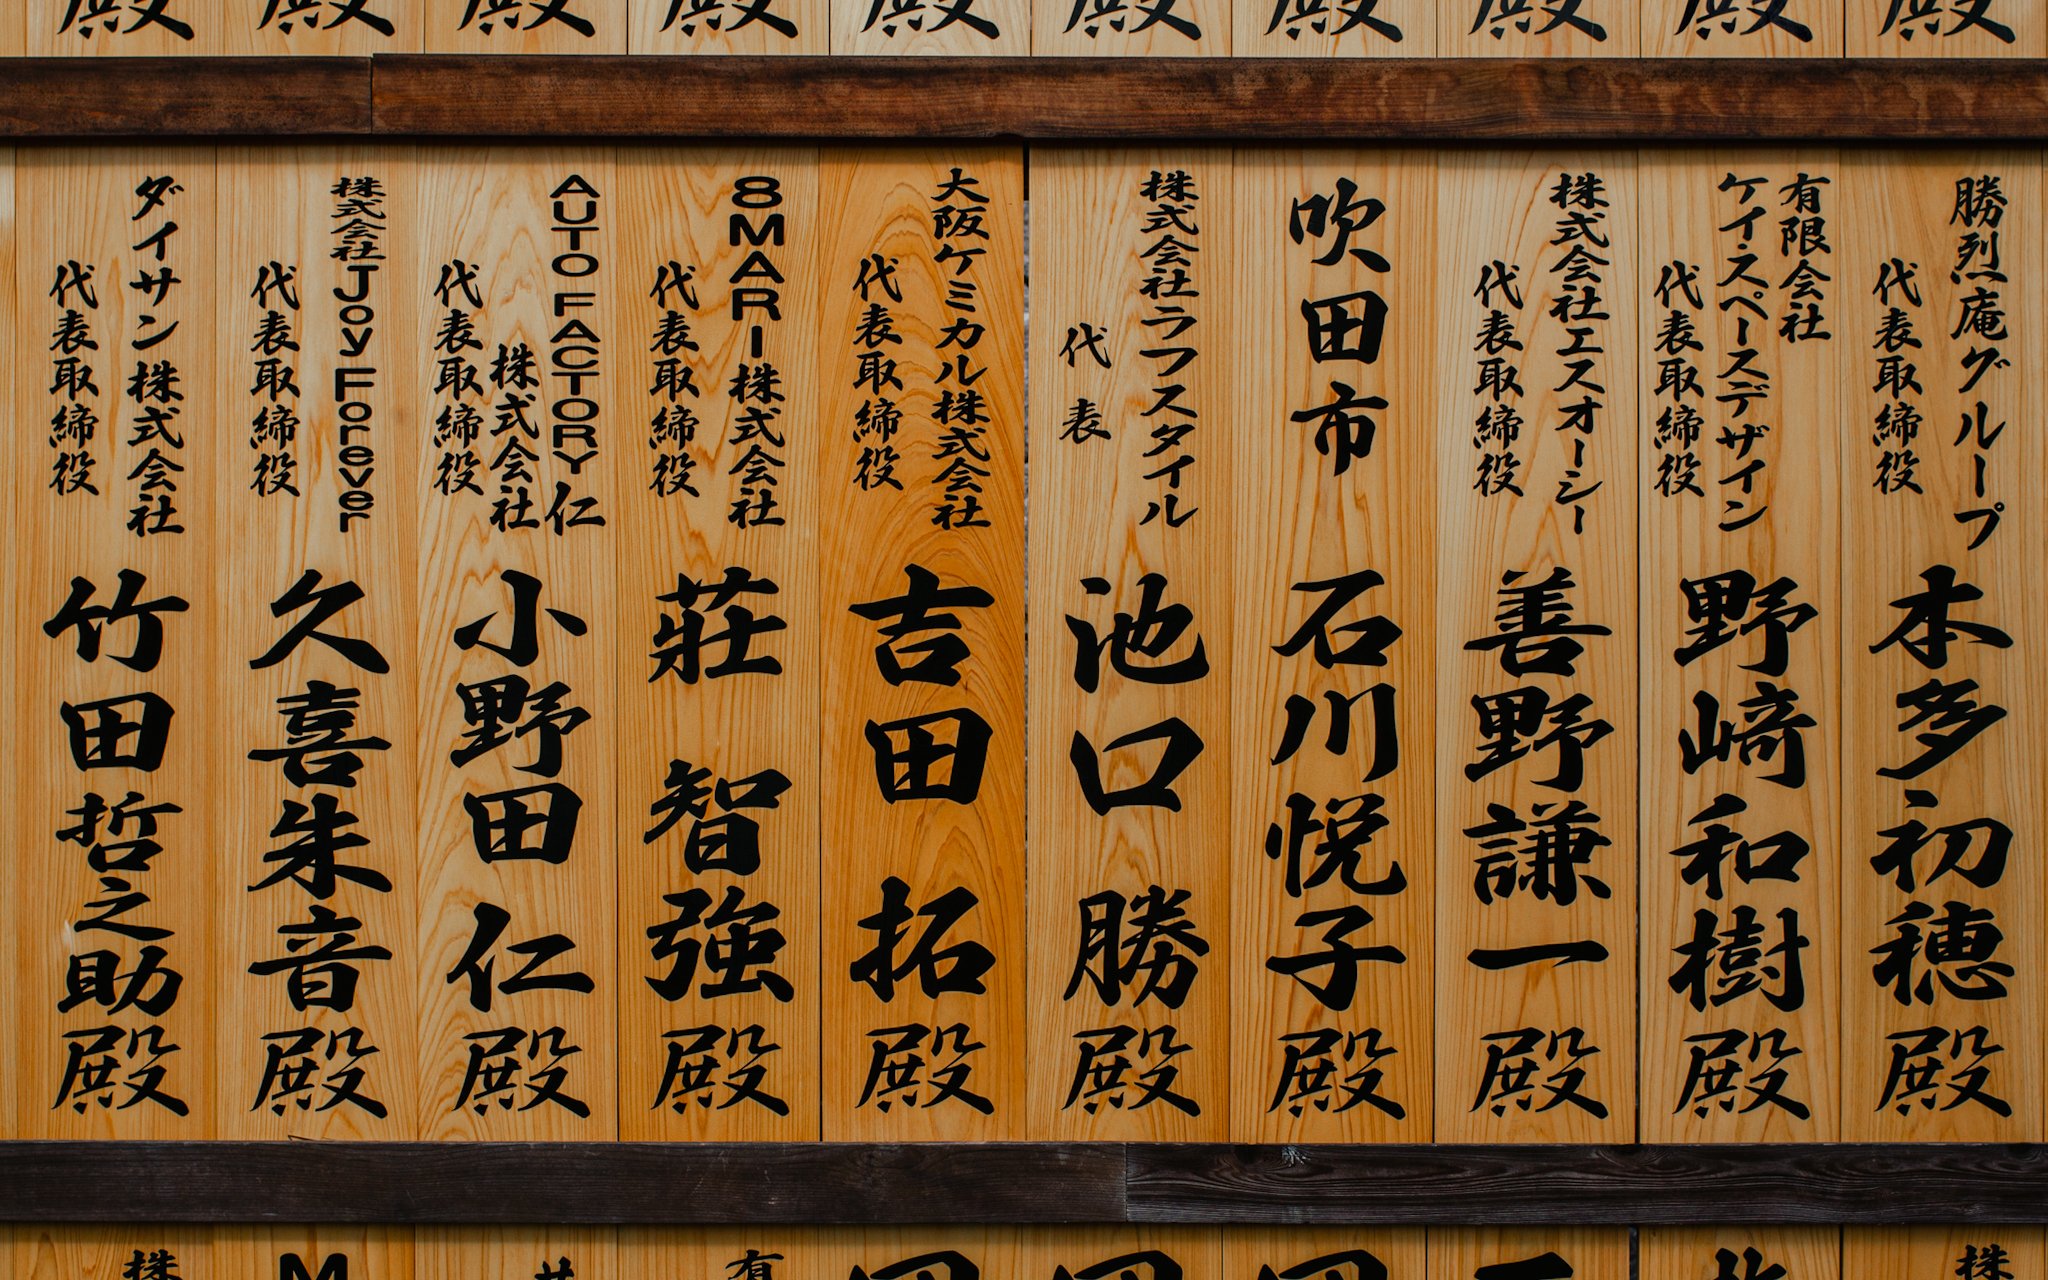 殿
殿
殿
殿
殿
殿
殿
殿
殿
殿
勝烈庵グループ
代表取締役
本多初穂殿
有限会社
ケイ・スペースデザイン
代表取締役
野崎和樹殿
株式会社エスオーシー
代表取締役
善野謙一殿
吹田市
石川悦子殿
株式会社ラフスタイル
代表
池口勝殿
大阪ケミカル株式会社
代表取締役
吉田拓殿
8MARI株式会社
代表取締役
莊智強殿
AUTO FACTORY 仁
株式会社
代表取締役
小野田仁殿
株式会社Joy Forever
代表取締役
久喜朱音殿
ダイサン株式会社
代表取締役
竹田哲之助殿
株
有
M
株